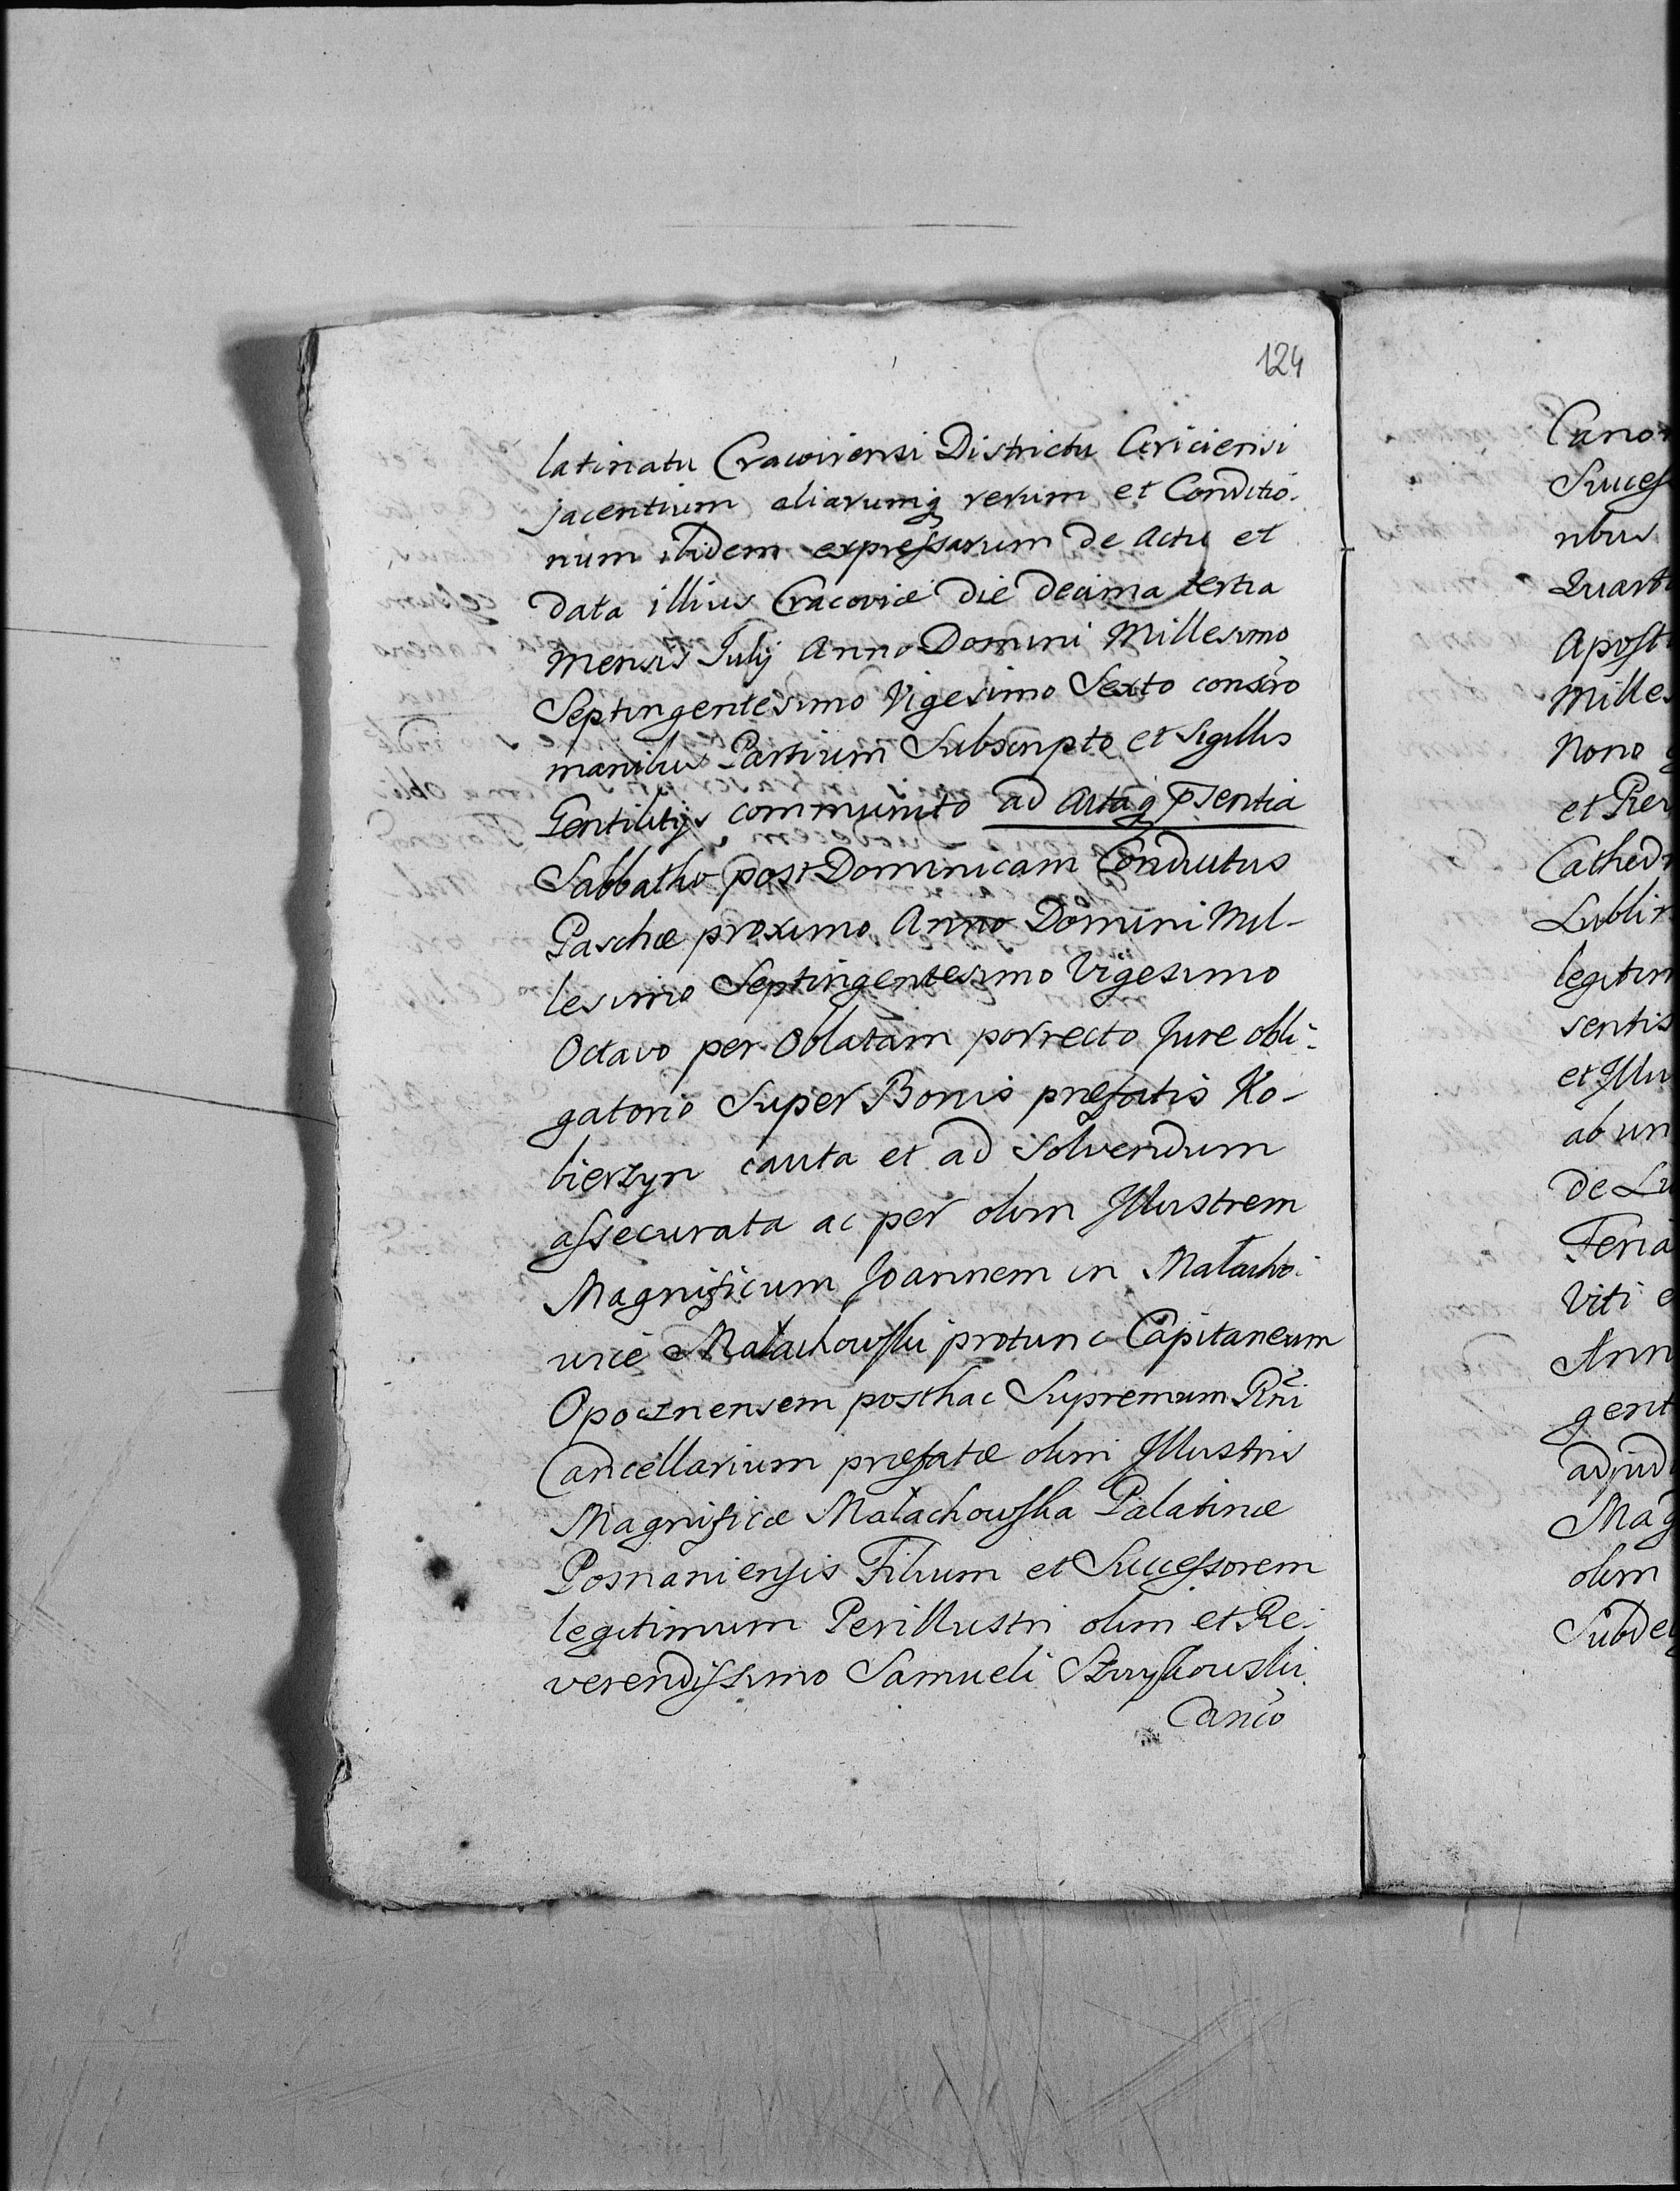 124
latinatu Cracoviensi Districtu Xriciensi
jacentium aliarumq rerum et Conditio-
num ibidem expressarum de Actu et
Data illius Cracoviæ die decima tertia
mensis Julij Anno Domini Millesimo
Septingentesimo Vigesimo Sexto conscro
manibus Partium Subscripto et Sigillis
Gentilitijs communito ad Actaq psentia
Sabbatho post Dominicam Conductus
Paschæ proximo Anno Domini Mil-
lesimo Septingentesimo Vigesimo
Octavo per Oblatam porrecto Jure obli-
gatorio Super Bonis prefatis Ko-
bierzyn cauta et ad solvendum
assecurata ac per olim Illustrem
Magnificum Joannem in Małacho-
wice Małachowski protunc Capitaneum
Opocznensem posthac Supremum Rñi
Cancellarium præfatæ olim Illustris
Magnificæ Małachowska Palatinæ
Posnaniensis Filium et Successorem
legitimum Perillustri olim et Re-
verendissimo Samueli Szwykowski
Canco
Cano
Succes
nbus
Quart
Apost
Milles
Nono
et Rer
Cathedr
Lublin
legitim
sentis
et Illu
ab un
de Lu
Feria
Viti e
Ann
gent
adjud
Mag
olim
Subdel